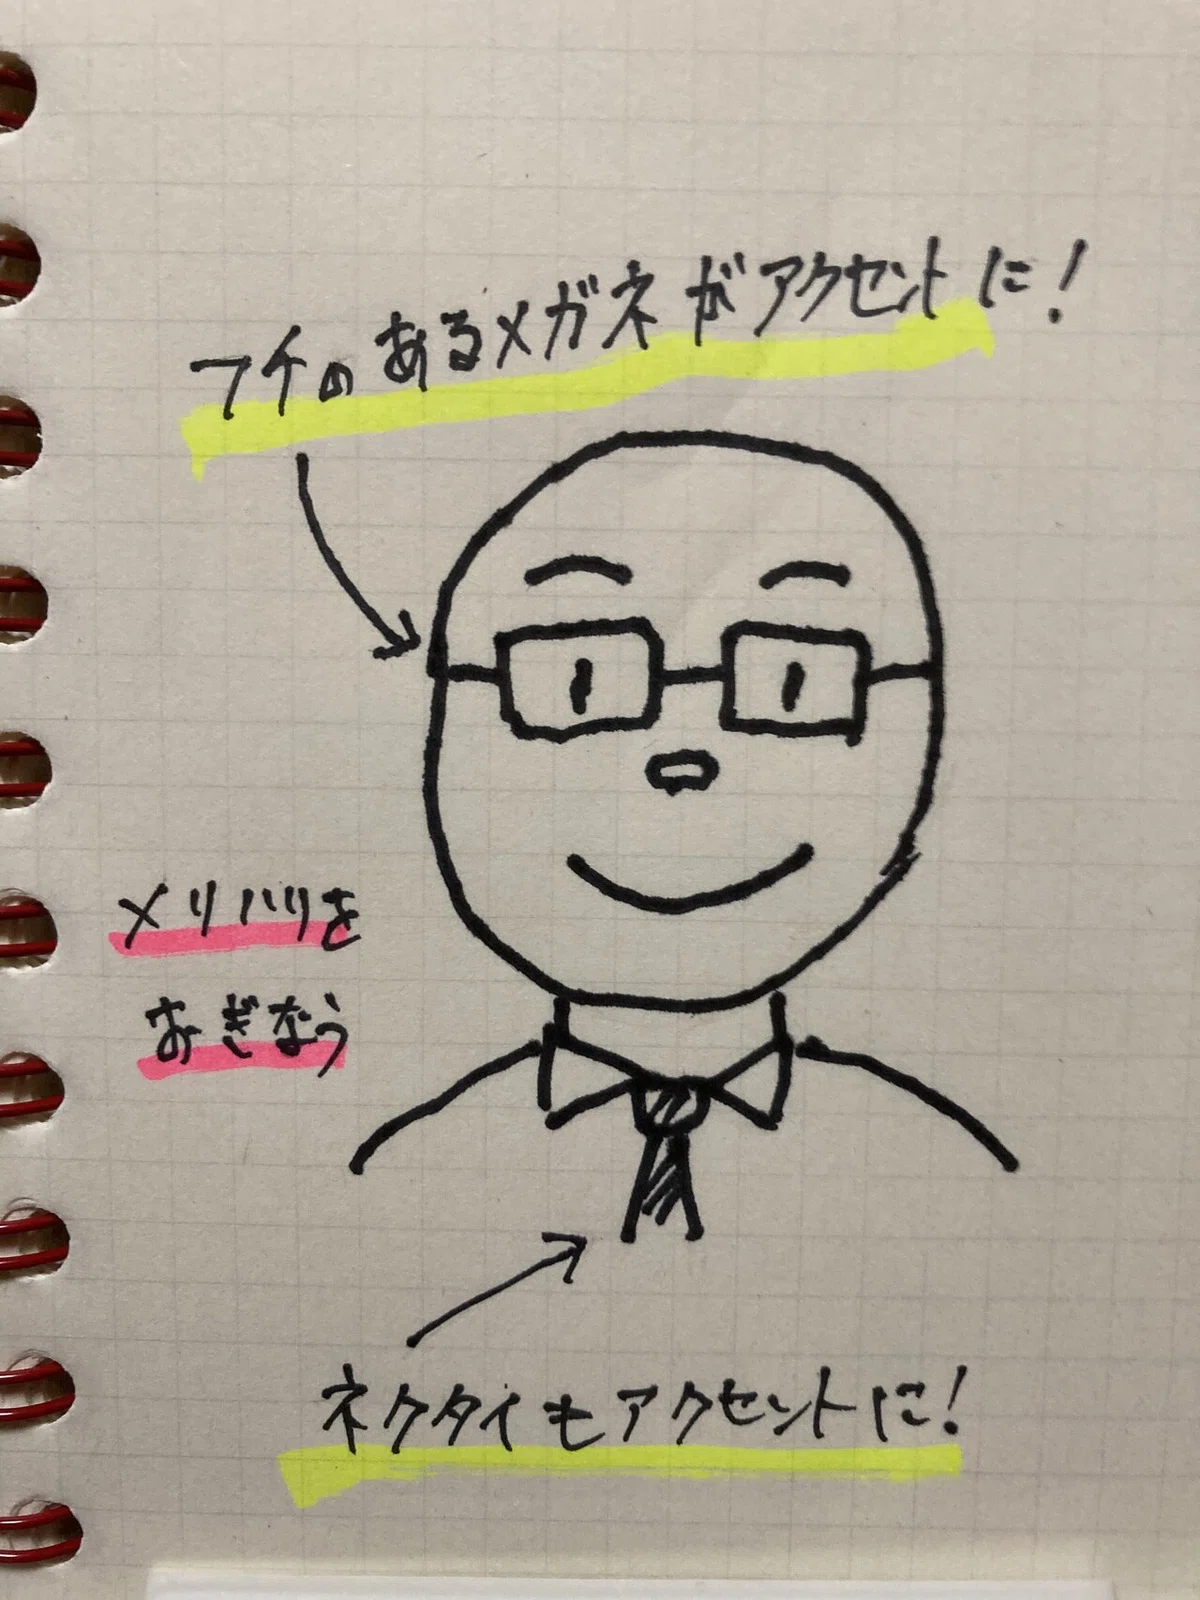 フチのあるメガネがアクセントに!
メリハリを
おぎなう
ネクタイもアクセントに!